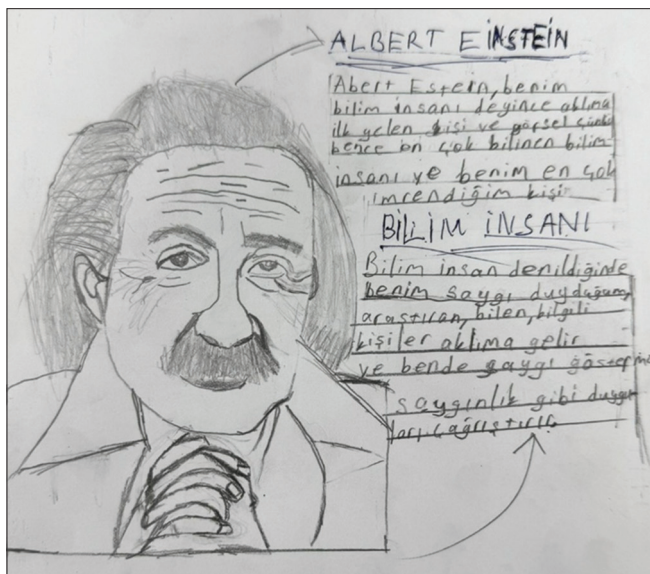 ALBERT EİNSTEİN
Abert Estein, benim
bilim insanı deyince aklıma
ilk gelen kişi ve görsel çünkü
bence en çok bilinen bilim
insanı ve benim en çok
imrendiğim kişi
BİLİM İNSANI
Bilim insan denildiğinde
benim saygı duyduğum,
araştıran, bilen, bilgili
kişiler aklıma gelir
ve bende saygı gösterme
saygınlık gibi duygu
ları çağrıştırır.